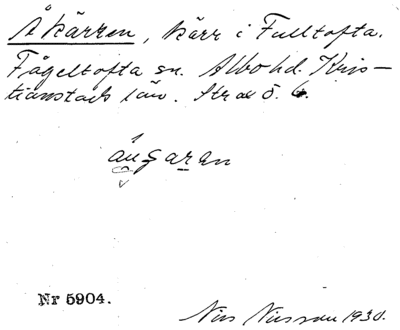 Åkärren, kärr i Fulltofta.
Fågeltofta sn. Albo hd. Kris-
tianstads län. Strax ö. 6.
Nr 5904.
Nils Nilsson 1930.